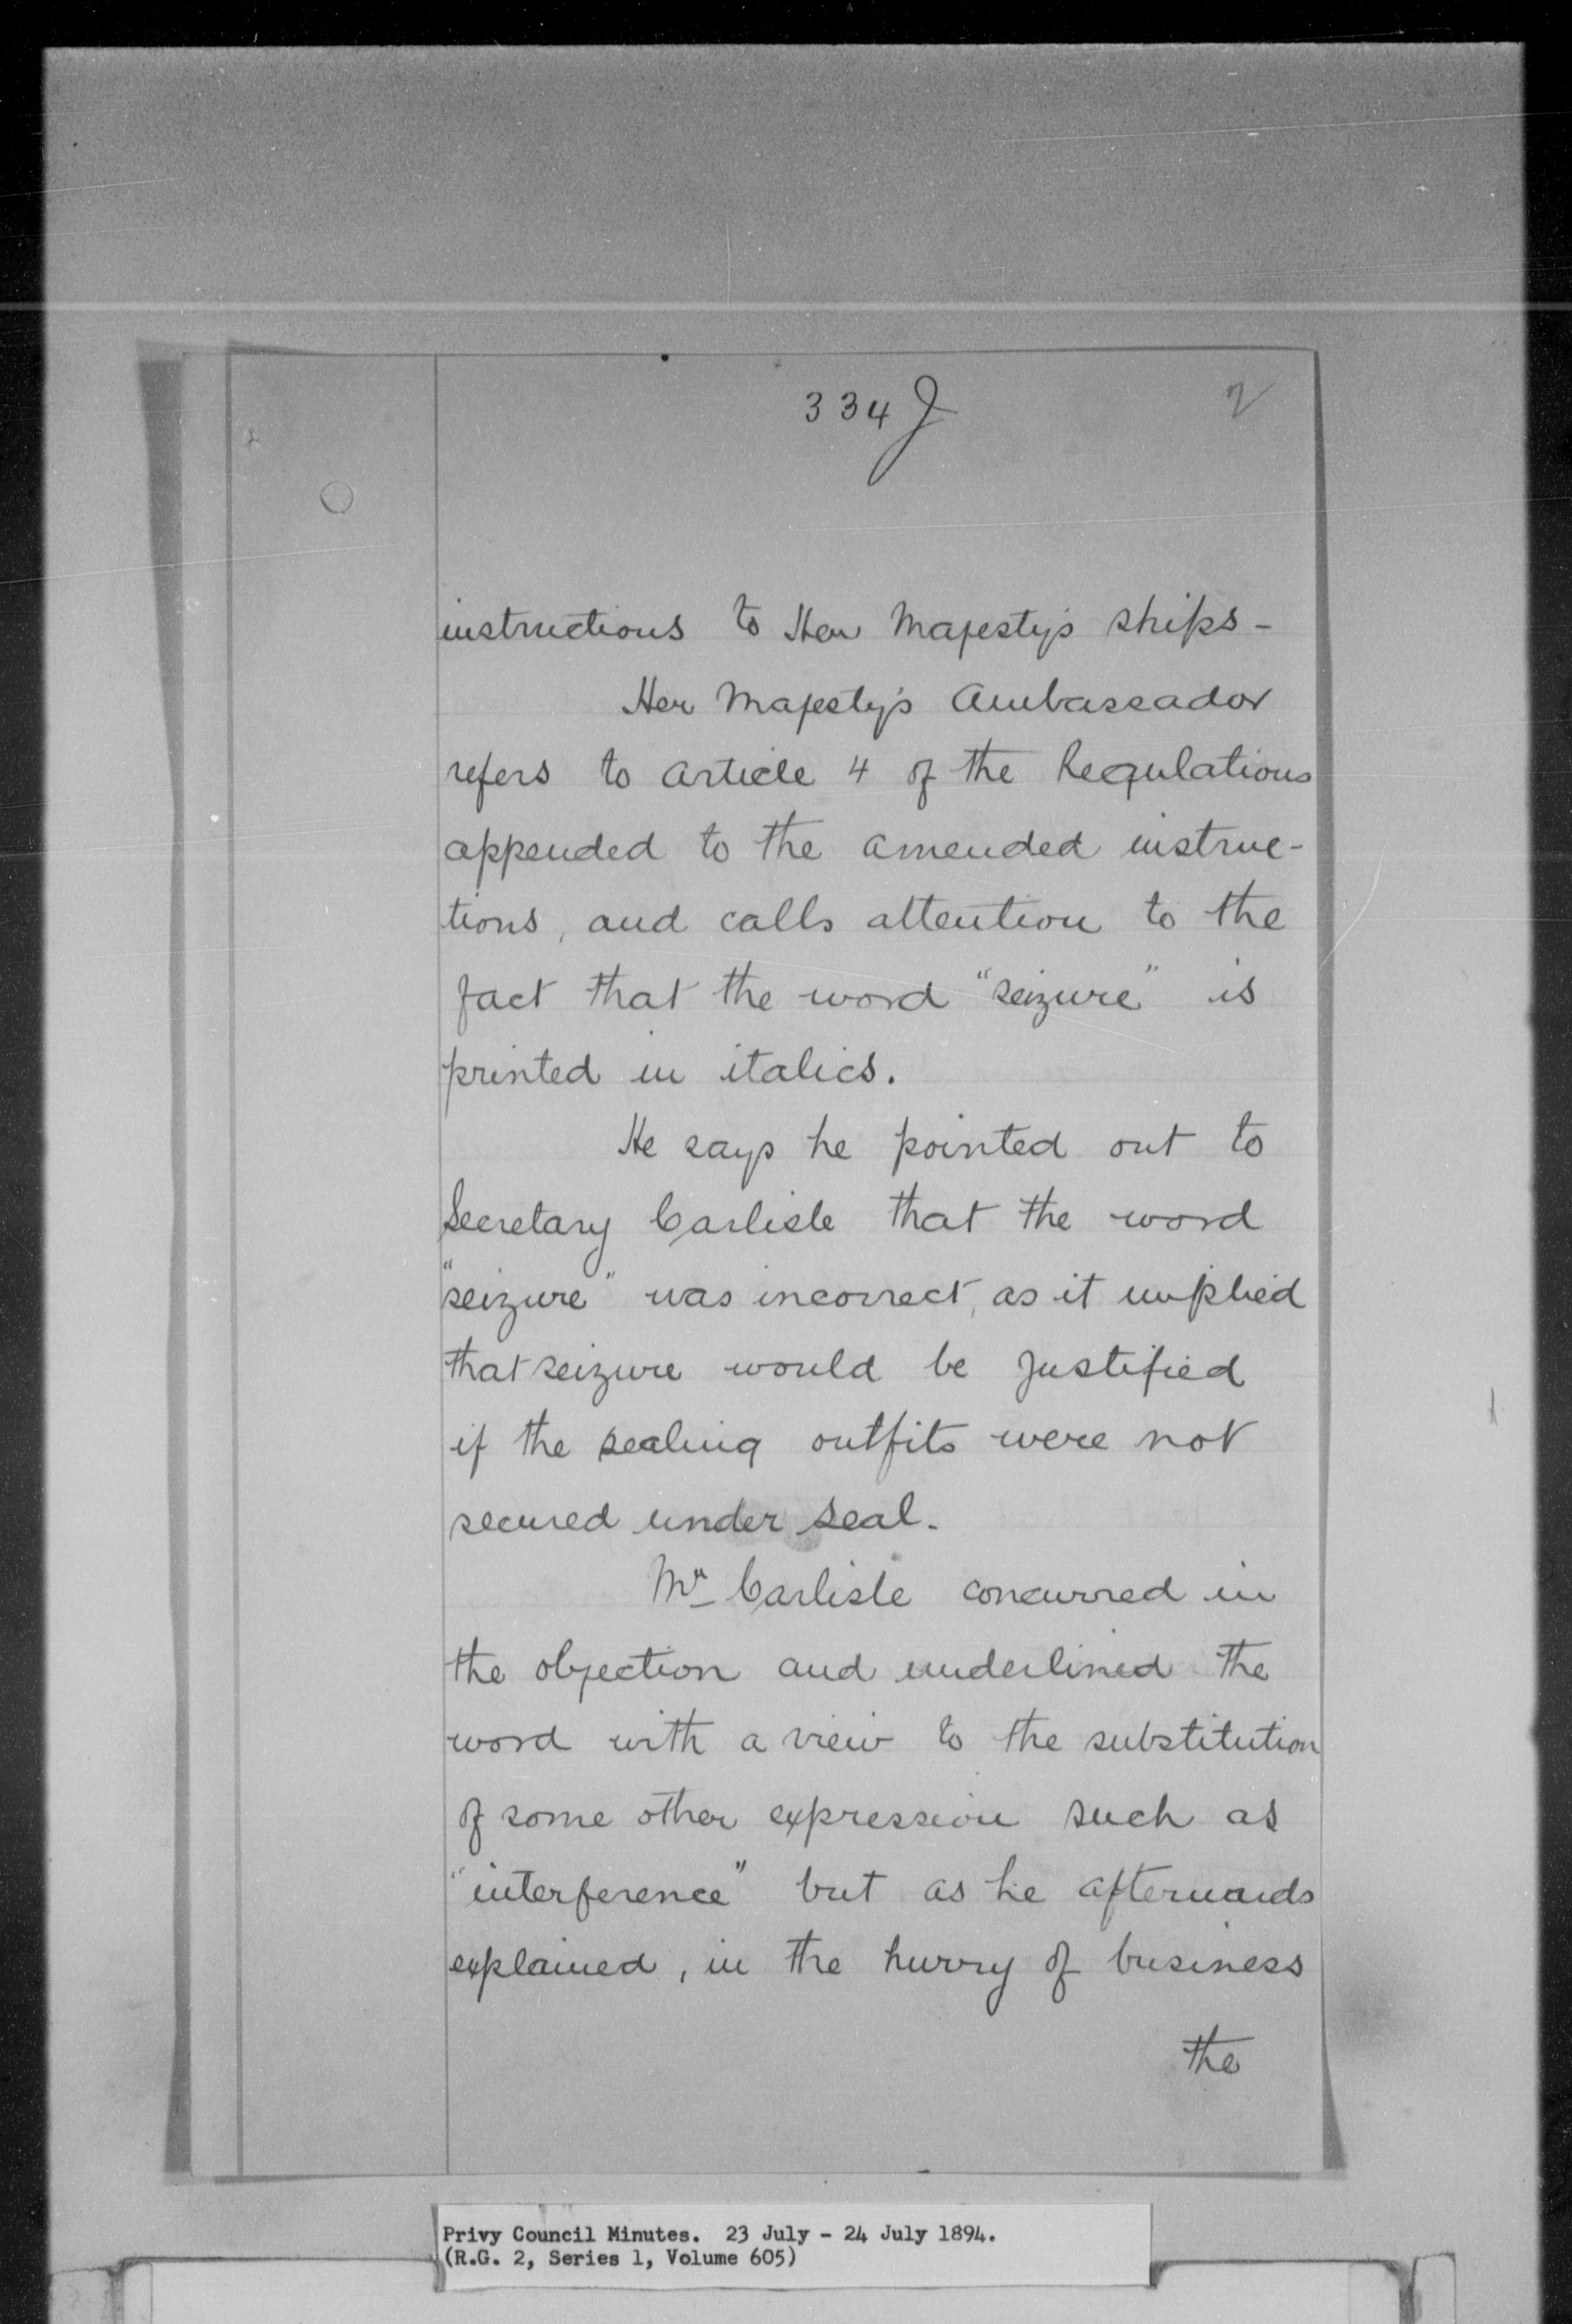 334 J 2
instructions to Her Majesty's ships -
Her Majesty's Ambassador
refers to Article 4 of the Regulations
appended to the amended instruc-
tions, and calls attention to the
fact that the word "seizure" is
printed in italics.
He says he pointed out to
Secretary Carlisle that the word
"seizure" was incorrect, as it implied
that seizure would be justified
if the sealing outfits were not
secured under seal.
Mr Carlisle concurred in
the objection and underlined the
word with a view to the substitution
of some other expression such as
"interference" but as he afterwards
explained, in the hurry of business
the
Privy Council Minutes. 23 July - 24 July 1894.
(R.G. 2, Series 1, Volume 605)